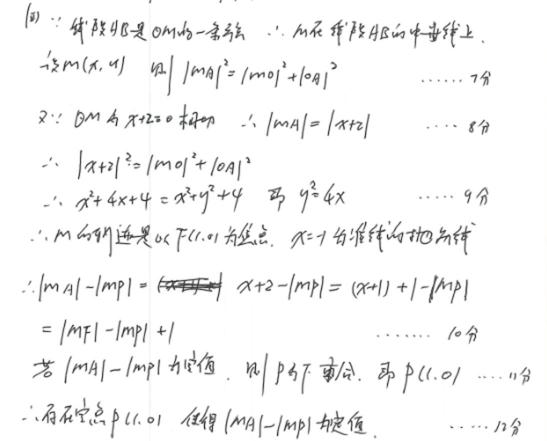 (2) ∵ 线段AB是⊙M的一条弦 ∴ M在线段AB的中垂线上.
设M(x,y) 则|MA|²=|MO|²+|OA|² ……7分
又∵ ⊙M与x+2=0相切 ∴ |MA|=|x+2| ……8分
∴ |x+2|²=|MO|²+|OA|²
∴ x²+4x+4=x²+y²+4 即 y²=4x ……9分
∴ M的轨迹是以F(1.0)为焦点. x=-1为准线的抛物线
∴|MA|-|MP|= x+2-|MP|=(x+1)+1-|MP|
=|MF|-|MP|+1 ……10分
若|MA|-|MP|为定值. 则P与F重合. 即P(1.0) ……11分
∴存在定点P(1.0) 使得|MA|-|MP|为定值. ……12分